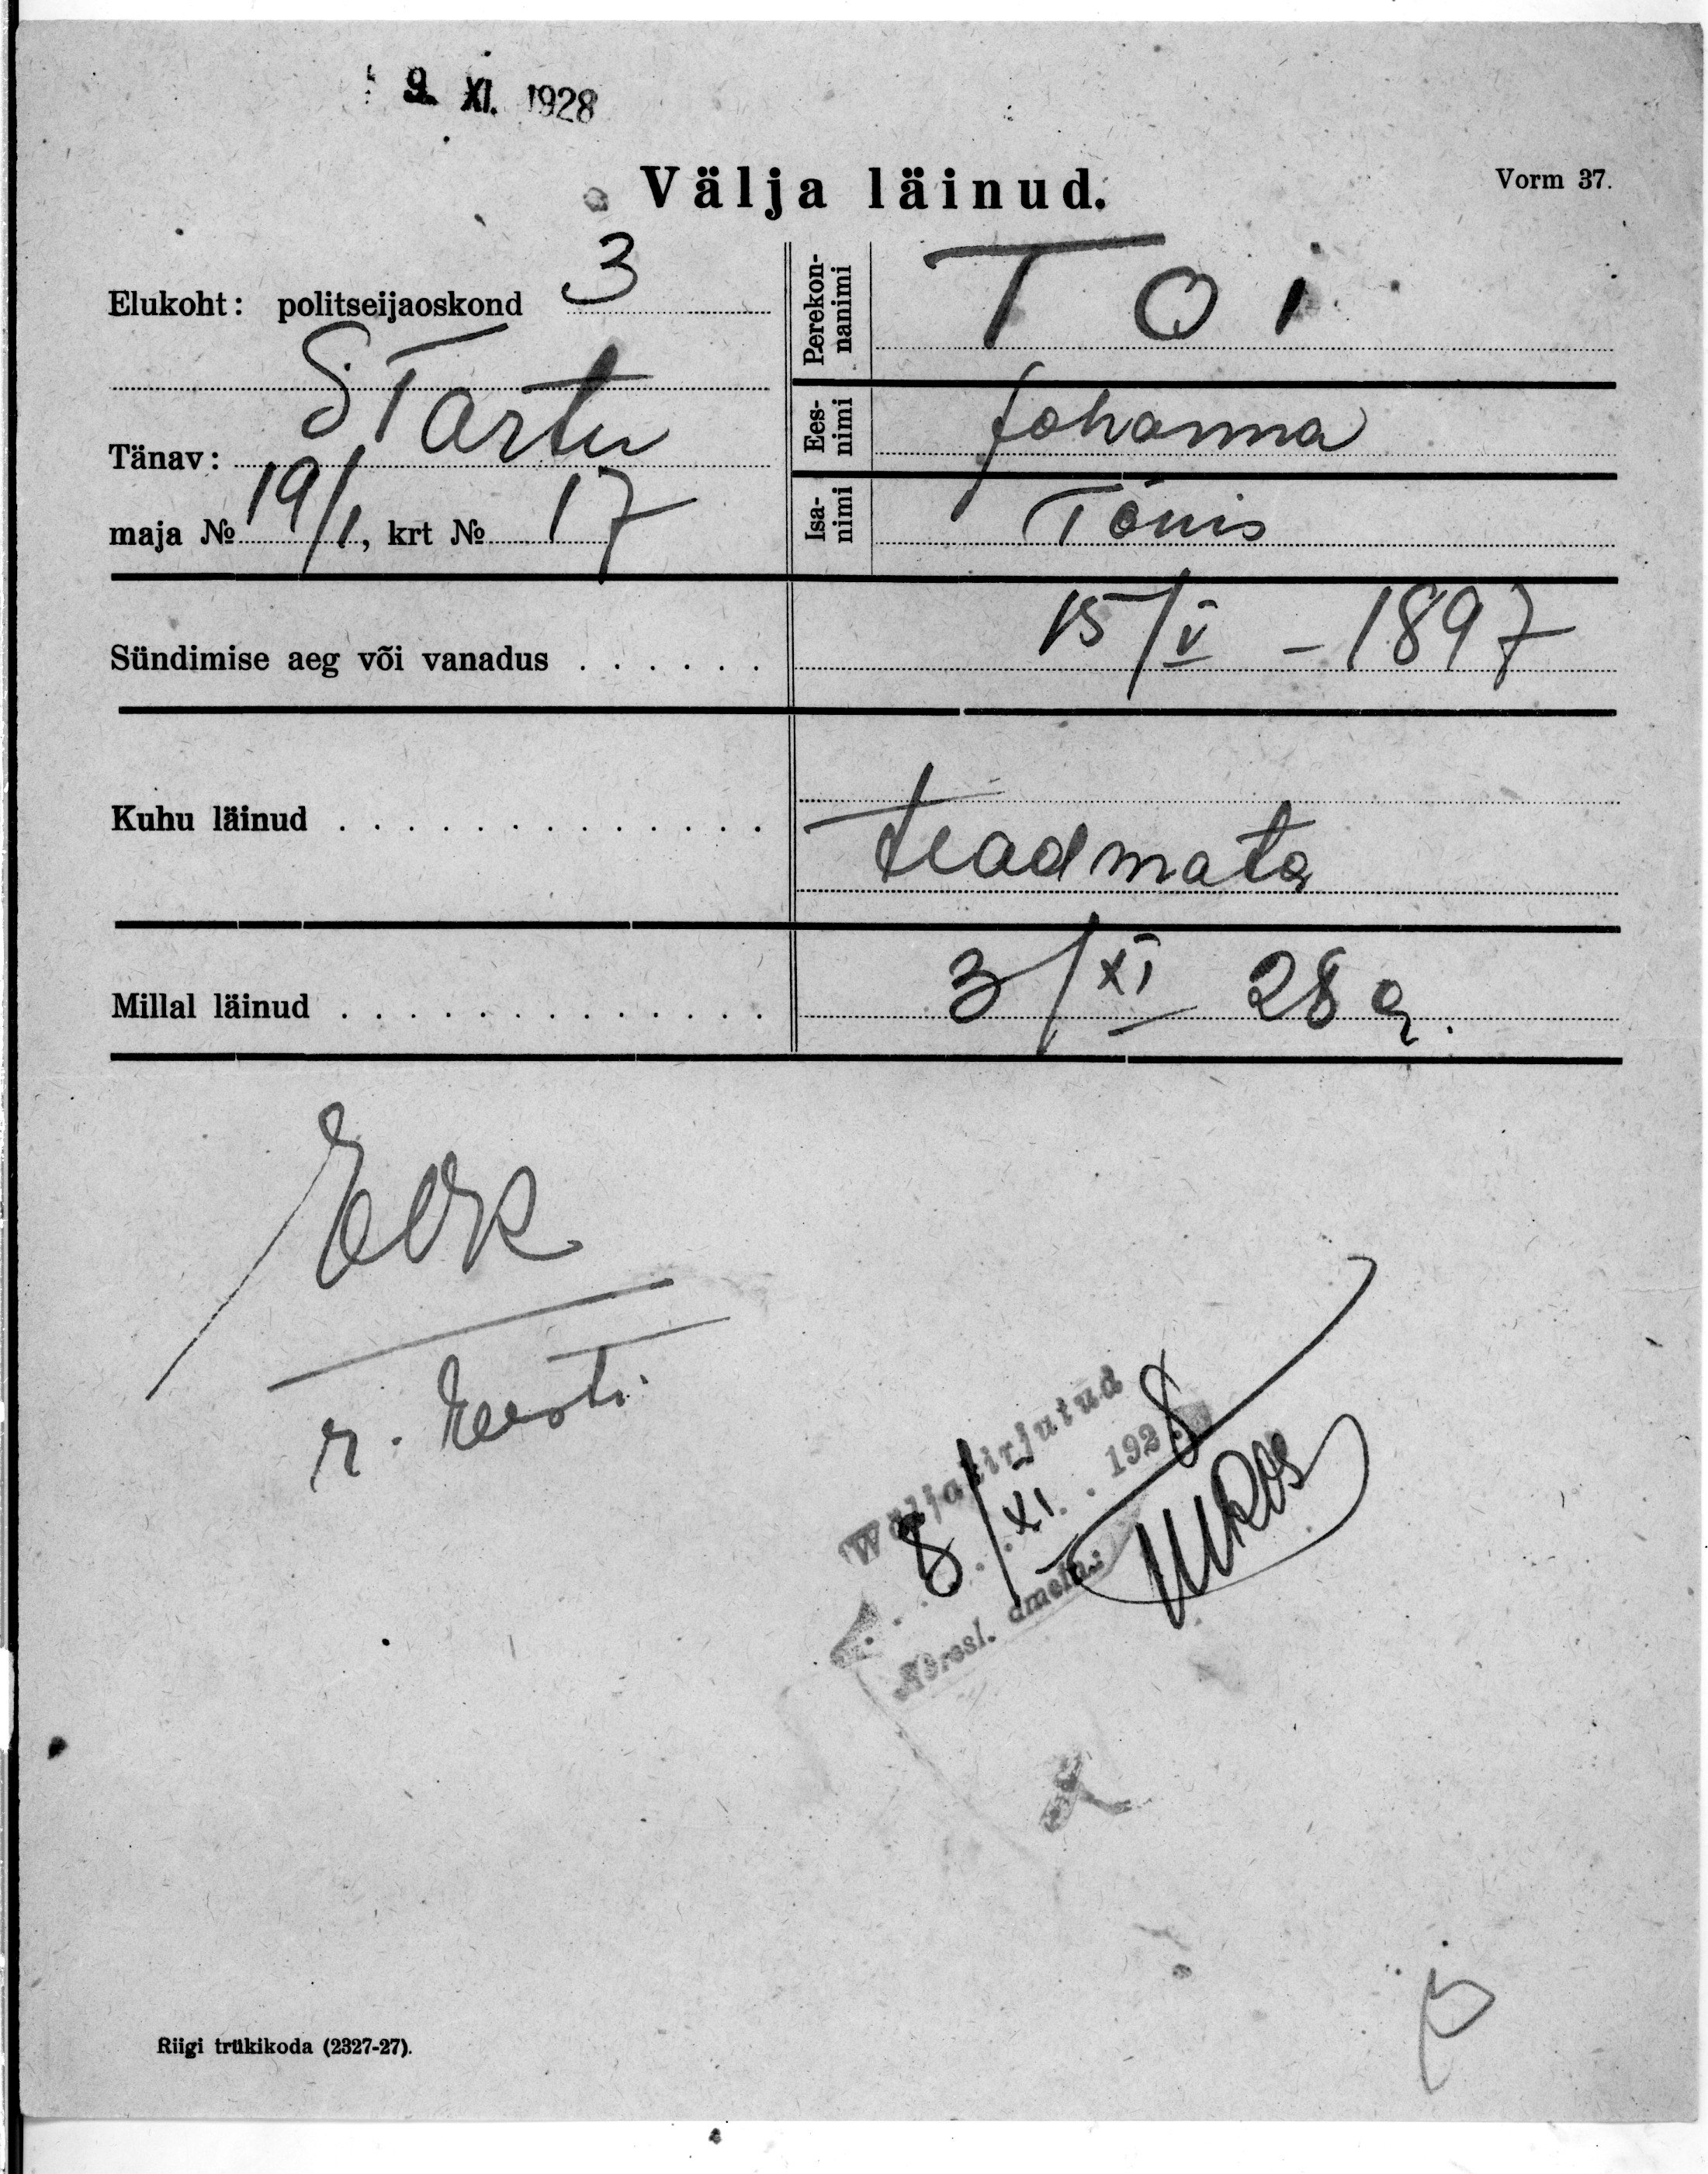 9. XI. 1928
Välja läinud.
Vorm 37.
Elukoht: politseijaoskond 3
Tänav: S Tartu
maja № 19/1, krt № 17
Perekon-
nanimi
Toi
Ees-
nimi
Johanna
Isa-
nimi
Tõnis
Sündimise aeg või vanadus . . . . . . 15/V - 1897
Kuhu läinud . . . . . . . . . . . . . teadmata
Millal läinud . . . . . . . . . . . . . 3/XI 28 a.
r. Eesti
Wäljakirjutud
8/XI 1928
Adresl. ametn.:
Riigi trükikoda (2327-27).